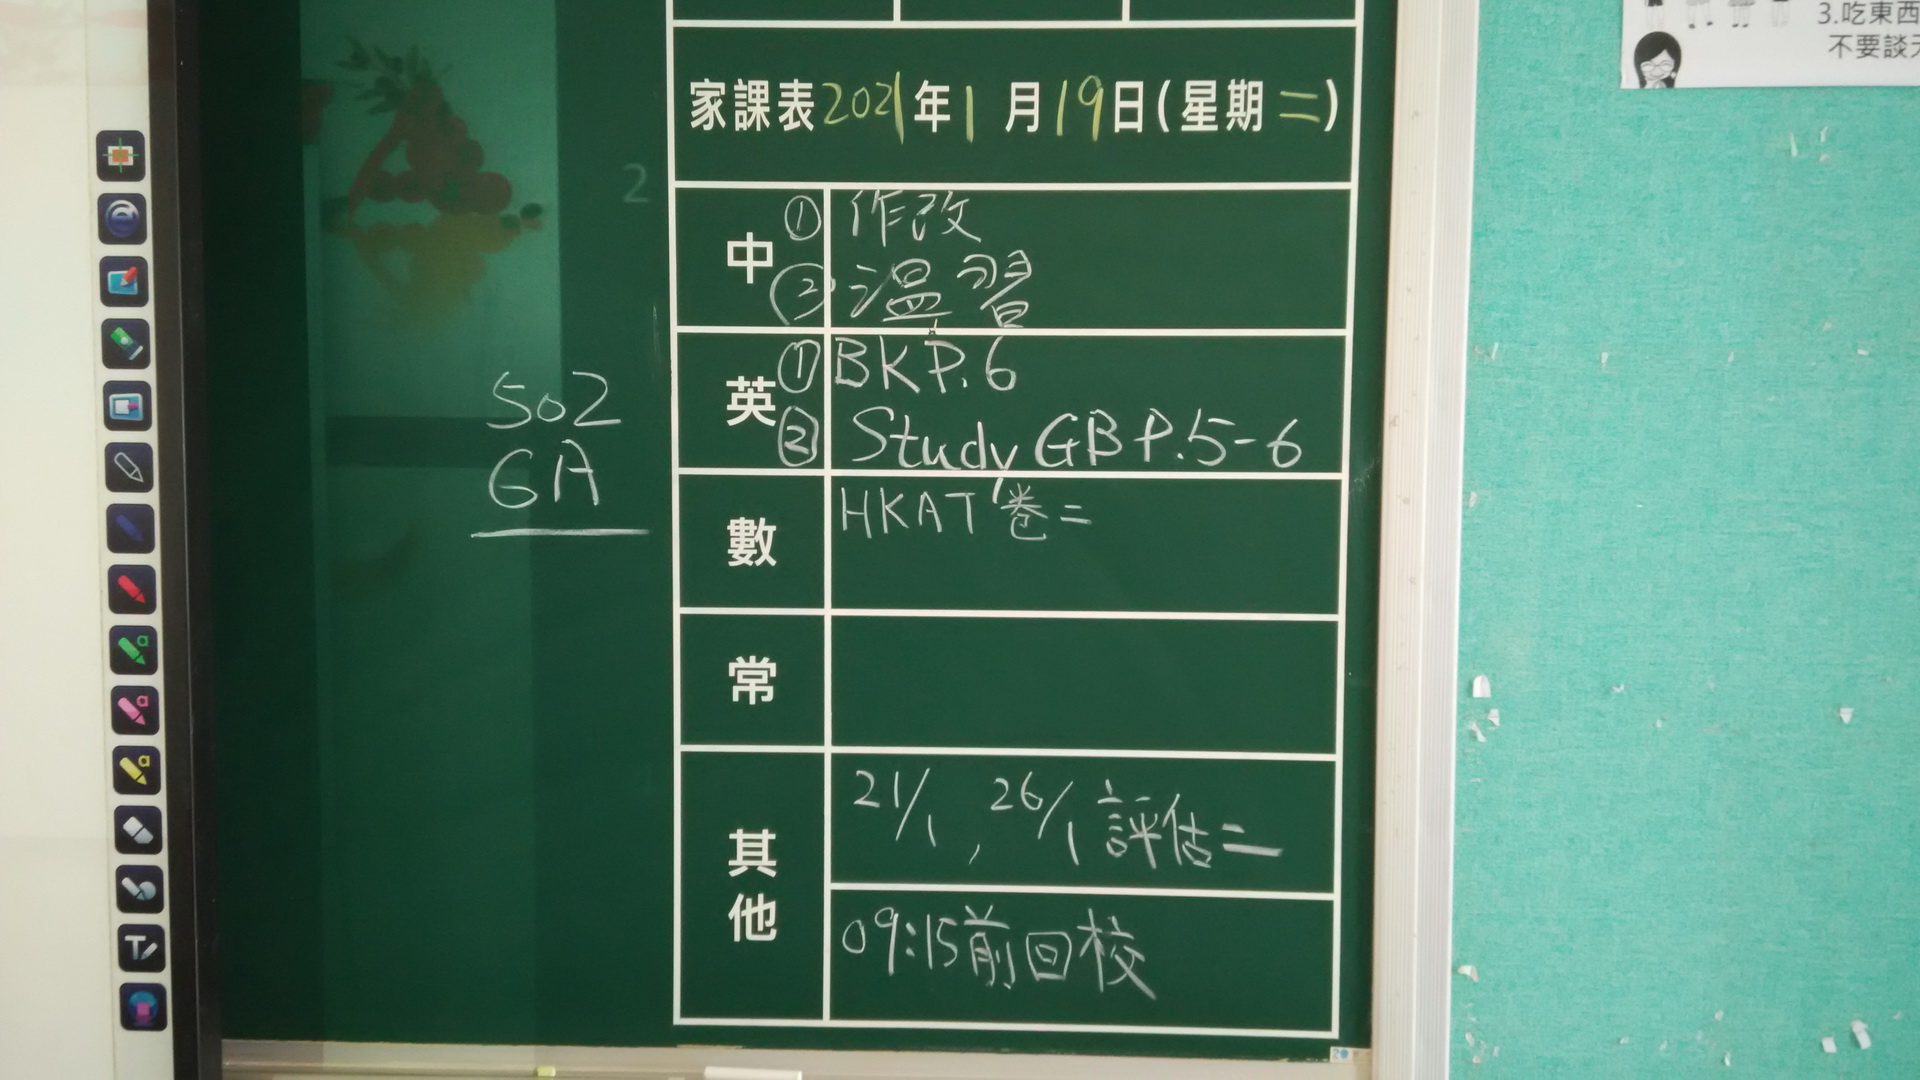 3.吃東西
不要談天
家課表2021年1月19日(星期二)
2
中
① 作改
② 溫習
英
① BK P.6
② Study GB P.5-6
502
6A
數
HKAT 卷二
常
其他
21/1, 26/1 評估二
09:15前回校